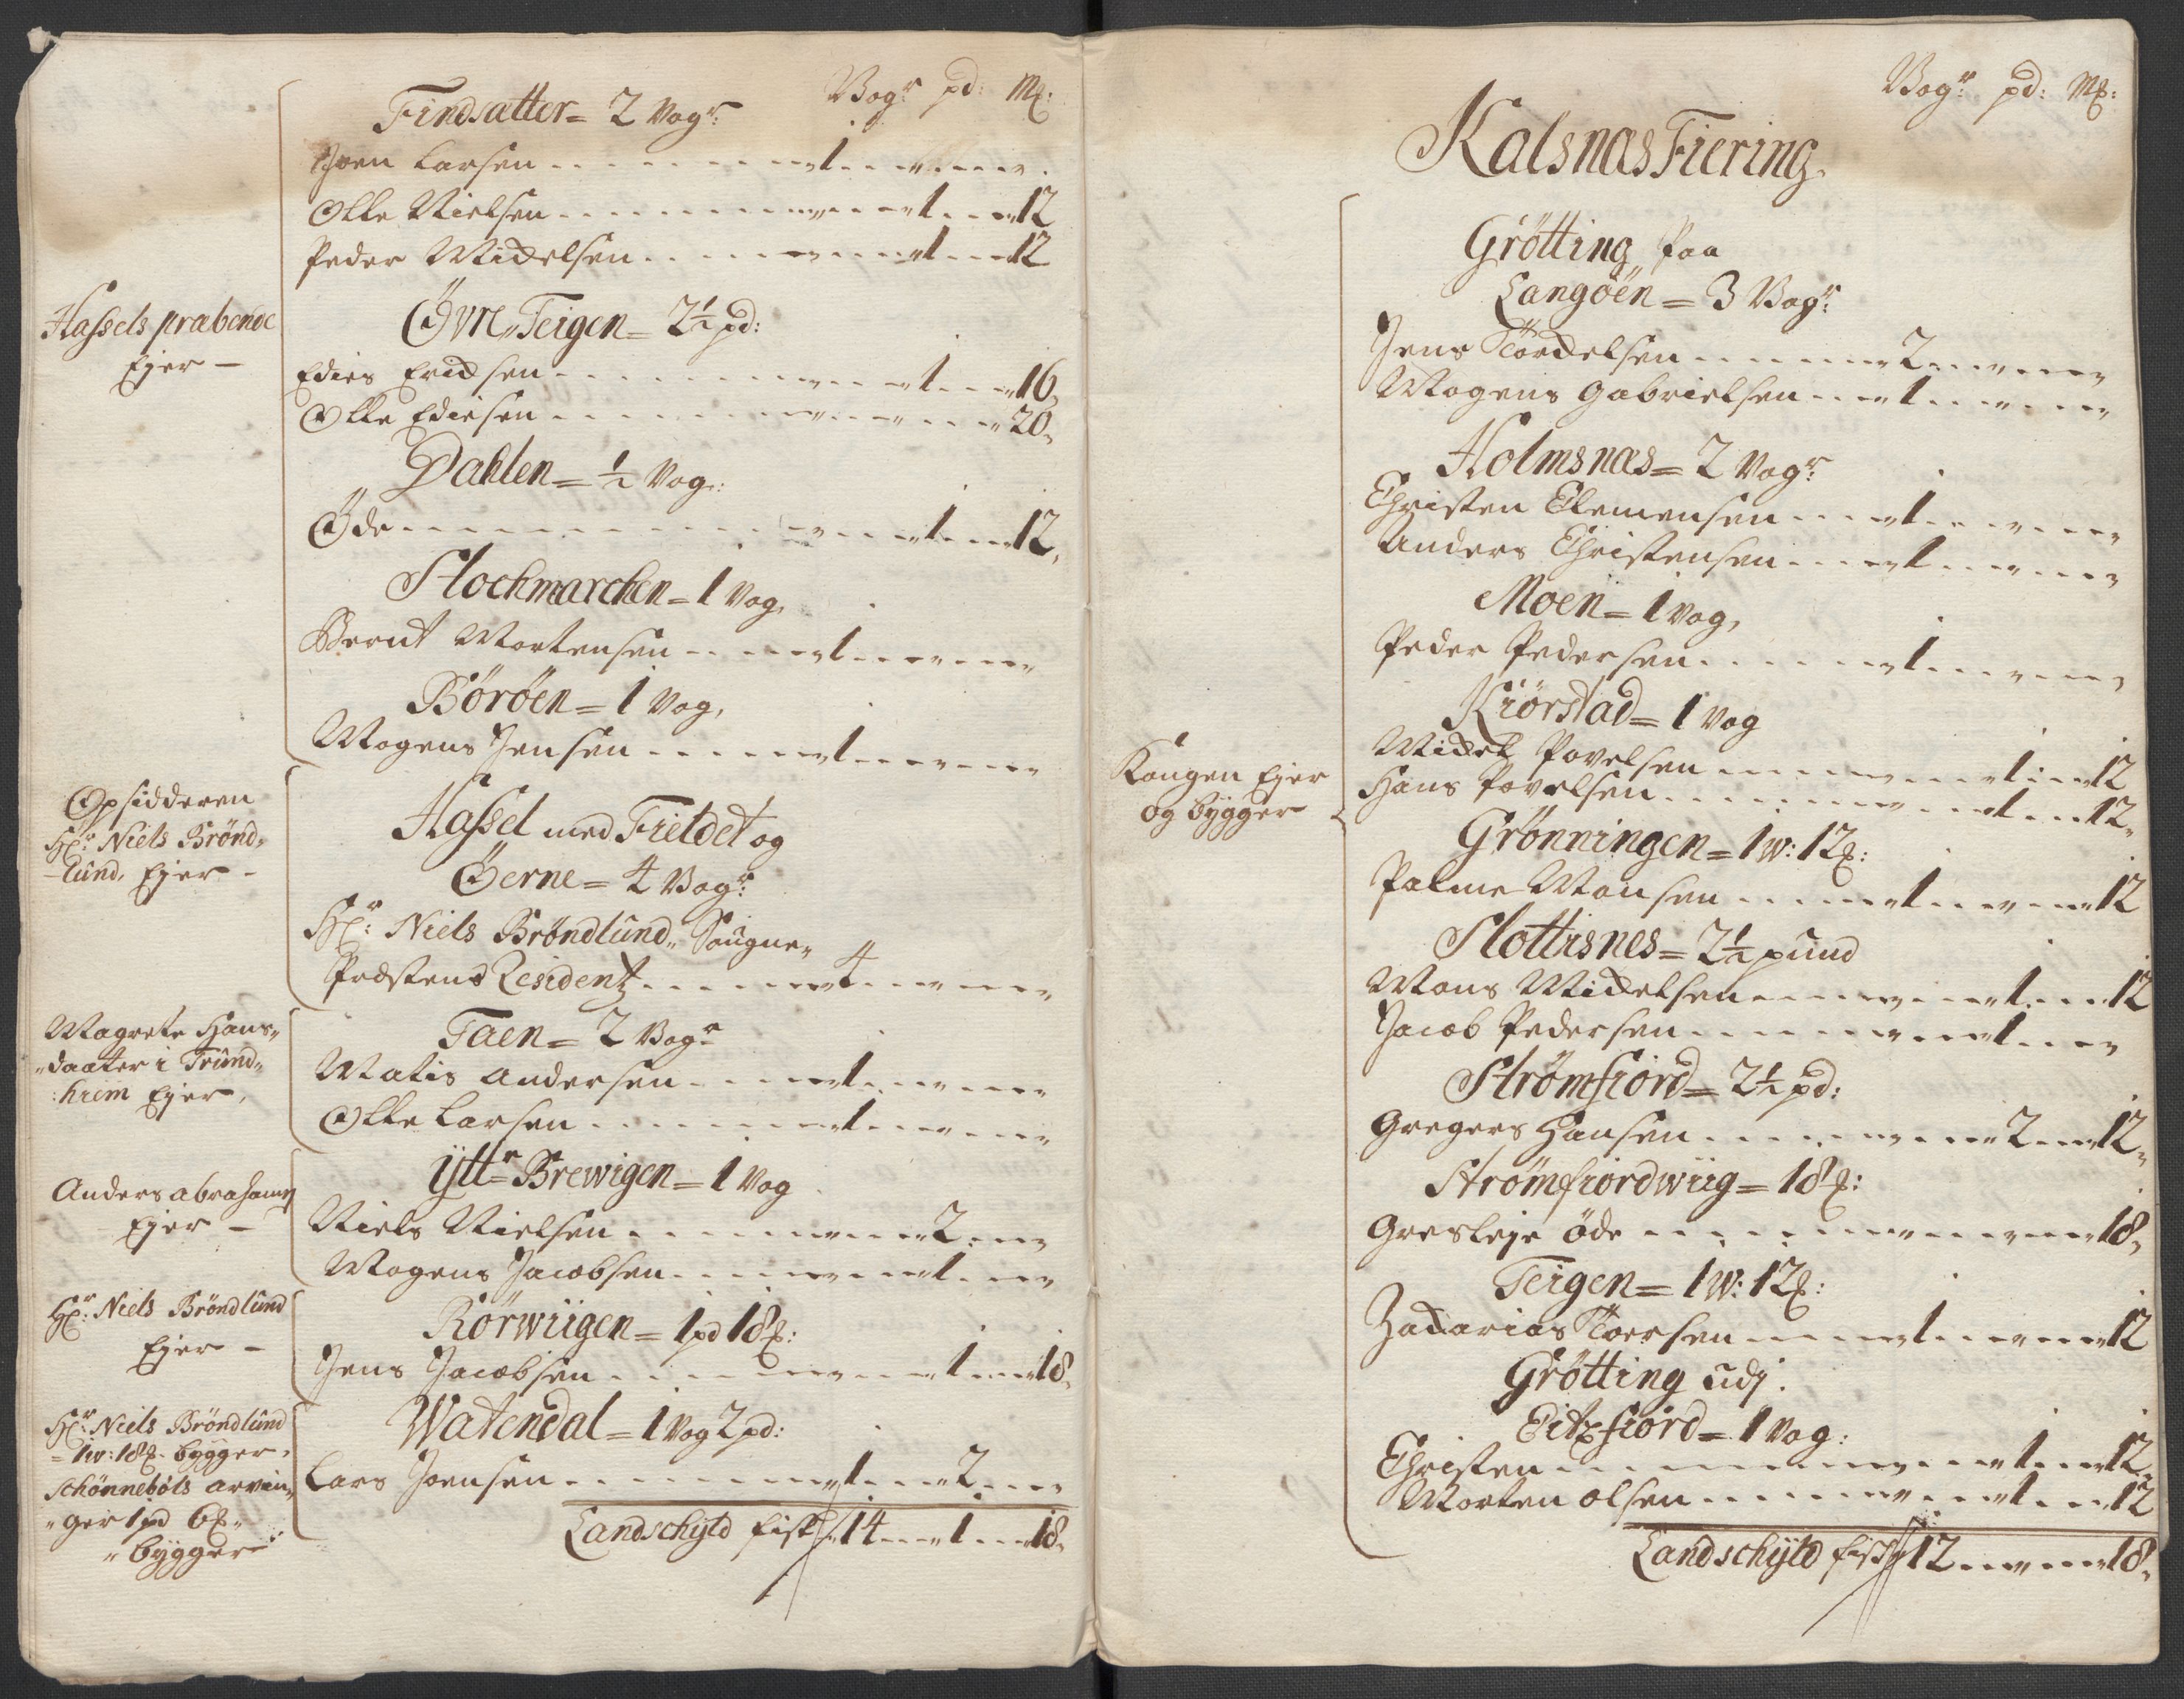 Vogr pd: M℔:
Findsætter = 2 Vogr:
Joen Larsen . . . 1 . . " . . "
Olle Nielsen . . . " . . 1 . . 12
Peder Michelsen . . . " . . 1 . . 12
Hassels præbende
Ejer —
Øvre Teigen = 2½ pd:
Edies Erichsen . . . " . . 1 . . 16,
Olle Ediesen . . . " . . " . . 20,
Dahlen = ½ Vog:
Øde . . . " . . 1 . . 12,
Stochmarchen = 1 Vog,
Bernt Mortensen . . . 1 . . " . . "
Börøen = 1 Vog,
Mogens Jensen . . . 1 . . " . . "
Opsidderen
Hr: Niels Brönd-
-lund, Ejer -
Hassel med Fieldet og
Øerne = 4 Vogr:
Hr: Niels Bröndlund, Sougne-
Præstens Residentz . . . 4 . . " . . "
Magrete Hans-
-daater i Trund-
:hiem Ejer,
Taen = 2 Vogr
Matis Andersen . . . 1 . . " . . "
Olle Larsen . . . 1 . . " . . "
Anders Abrahams
Ejer —
Ytt = Brewigen = 1 Vog
Niels Nielsen . . . " . . 2 . . "
Mogens Jacobsen . . . " . . 1 . . "
Hr: Niels Bröndlund
Ejer -
Rörwiigen = 1 pd 18 ℔:
Jens Jacobsen . . . " . . 1 . . 18,
Hr: Niels Bröndlund
= 1 w: 18 ℔ - bygger,
Schönnebøls arvin-
-ger 1 pd 6 ℔
" bygger
Watendal = 1 Vog 2 pd:
Lars Joensen . . . 1 . . 2 . . "
Landschyld fisk 14 . . 1 . . 18,
Vogr: pd: M℔:
Kalsnæs Fiering.
Grötting paa
Langöen = 3 Vogr:
Jens Tördelsen . . . 2 . . " . . "
Mogens Gabrielsen . . . 1 . . " . . "
Holmsnæs = 2 Vogr:
Christen Clemensen . . . 1 . . " . . "
Anders Christensen . . . 1 . . " . . "
Moen = 1 Vog,
Peder Pedersen . . . 1 . . " . . "
Kongen Ejer
og bygger
Kiörstad = 1 Vog
Michel Povelsen . . . " . . 1 . . 12
Hans Povelsen . . . " . . 1 . . 12,
Grönningen = 1 w: 12 ℔:
Palme Monsen . . . 1 . . " . . 12
Slottisnes = 2½ pund
Mons Michelsen . . . " . . 1 . . 12
Jacob Pedersen . . . " . . 1 . . "
Strømfiord = 2½ pd:
Gregers Hansen . . . " . . 2 . . 12,
Strömfiordwiig = 18 ℔:
Gresleje öde . . . " . . " . . 18,
Teigen = 1 w: 12 ℔:
Zacharias Toersen . . . 1 . . " . . 12
Grötting udj.
Eitzfiord = 1 Vog:
Christen . . . " . . 1 . . 12,
Morten Olsen . . . " . . 1 . . 12
Landschyld fisk 12 . . " . . 18,